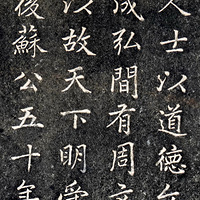 人士以道德
成弘間有周文
以故天下明
後蘇公五十年